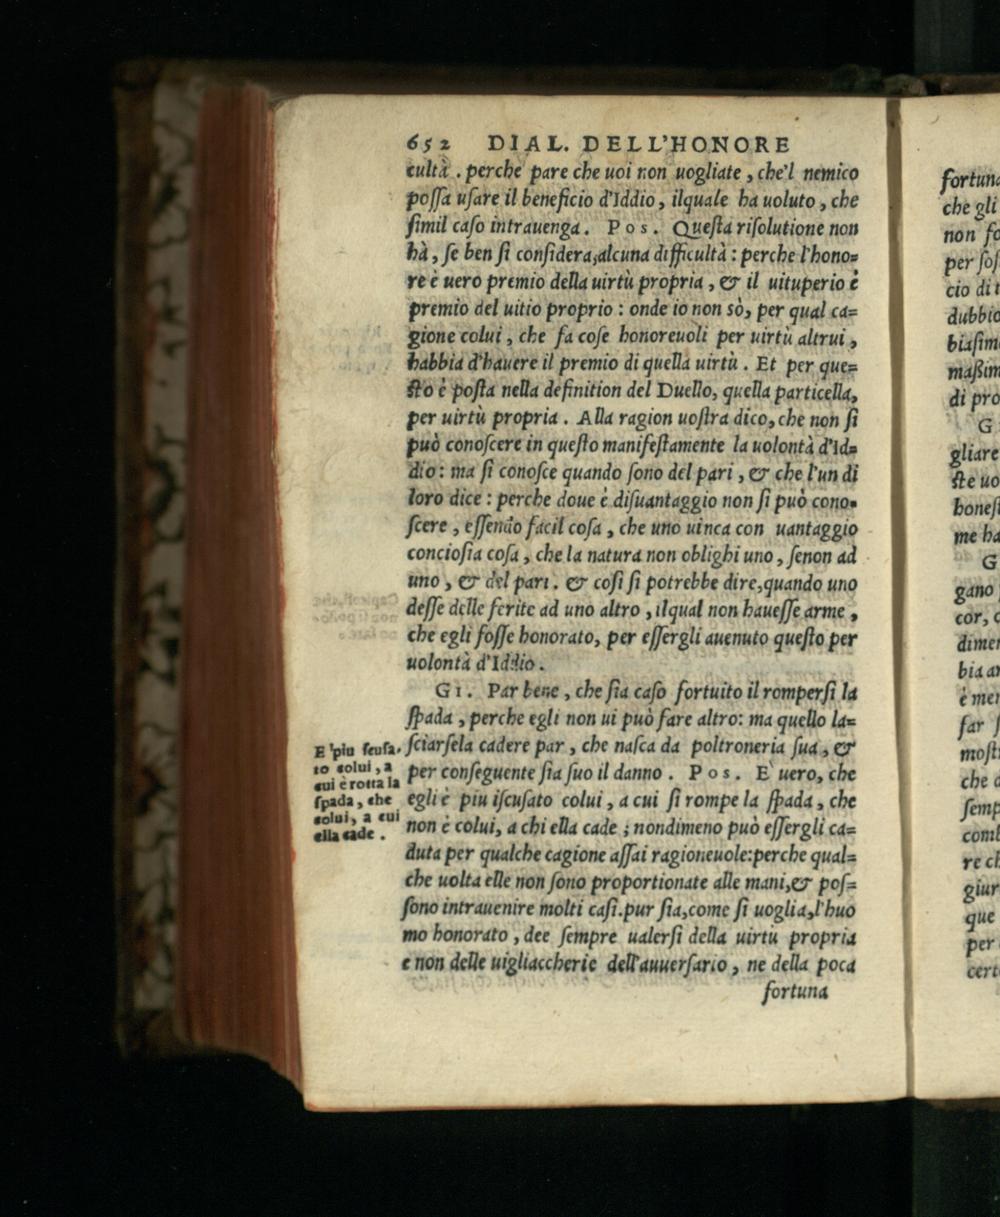 652 DIAL. DELL'HONORE
cultà. perche pare che uoi non uogliate, che'l nemico
poſſa uſare il beneficio d'Iddio, ilquale ha uoluto, che
ſimil caſo intrauenga. Pos. Queſta riſolutione non
hà, ſe ben ſi conſidera, alcuna difficultà: perche l'hono=
re è uero premio della uirtù propria, & il uituperio è
premio del uitio proprio: onde io non sò, per qual ca=
gione colui, che fa coſe honoreuoli per uirtù altrui,
habbia d'hauere il premio di quella uirtù. Et per que=
ſto è poſta nella definition del Duello, quella particella,
per uirtù propria. Alla ragion uoſtra dico, che non ſi
può conoſcere in queſto manifeſtamente la uolontà d'Id=
dio: ma ſi conoſce quando ſono del pari, & che l'un di
loro dice: perche doue è diſuantaggio non ſi può cono=
ſcere, eſſendo facil coſa, che uno uinca con uantaggio
concioſia coſa, che la natura non oblighi uno, ſenon ad
uno, & del pari. & coſi ſi potrebbe dire, quando uno
deſſe delle ferite ad uno altro, ilqual non haueſſe arme,
che egli foſſe honorato, per eſſergli auenuto queſto per
uolontà d'Iddio.
GI. Par bene, che ſia caſo fortuito il romperſi la
ſpada, perche egli non ui può fare altro: ma quello la=
ſciarſela cadere par, che naſca da poltroneria ſua, &
per conſeguente ſia ſuo il danno. Pos. E' uero, che
egli è piu iſcuſato colui, a cui ſi rompe la ſpada, che
non è colui, a chi ella cade; nondimeno può eſſergli ca=
duta per qualche cagione aſſai ragioneuole: perche qual=
che uolta elle non ſono proportionate alle mani, & poſ=
ſono intrauenire molti caſi. pur ſia, come ſi uoglia, l'huo
mo honorato, dee ſempre ualerſi della uirtù propria
e non delle uigliaccherie dell'auuerſario, ne della poca
fortuna
E' piu ſcuſa-
to colui, a
cui è rotta la
ſpada, che
colui, a cui
ella cade.
fortuna
che gli
non fo
per ſoſ
cio di
dubbio
biaſim
maßim
di pro
G
gliare
ſte uo
honeſ
me ha
G
gano
cor, c
dimen
bia ar
è mer
far ſ
moſt
che a
ſemp
comb
re ch
giur
que
per
cert